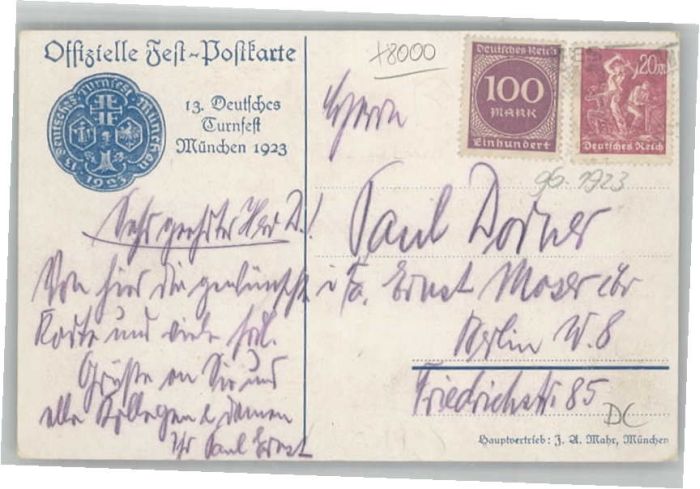 Offizielle Fest-Postkarte
13. Deutsches
Turnfest
München 1923
13. Deutsches Turnfest München
1923
Sehr geehrter Herr D.!
Von hier die gewünschte
Karte und viele frdl.
Grüße an Sie und
alle Kollegen & Damen
Ihr Paul Ernst
+8000
Deutsches Reich
100
MARK
Einhundert
20M
Deutsches Reich
1923
Herrn
Paul Dorner
i/Fa. Ernst Moser
Berlin W. 8
Friedrichstr 85
DC
Hauptvertrieb: J. A. Mahr, München